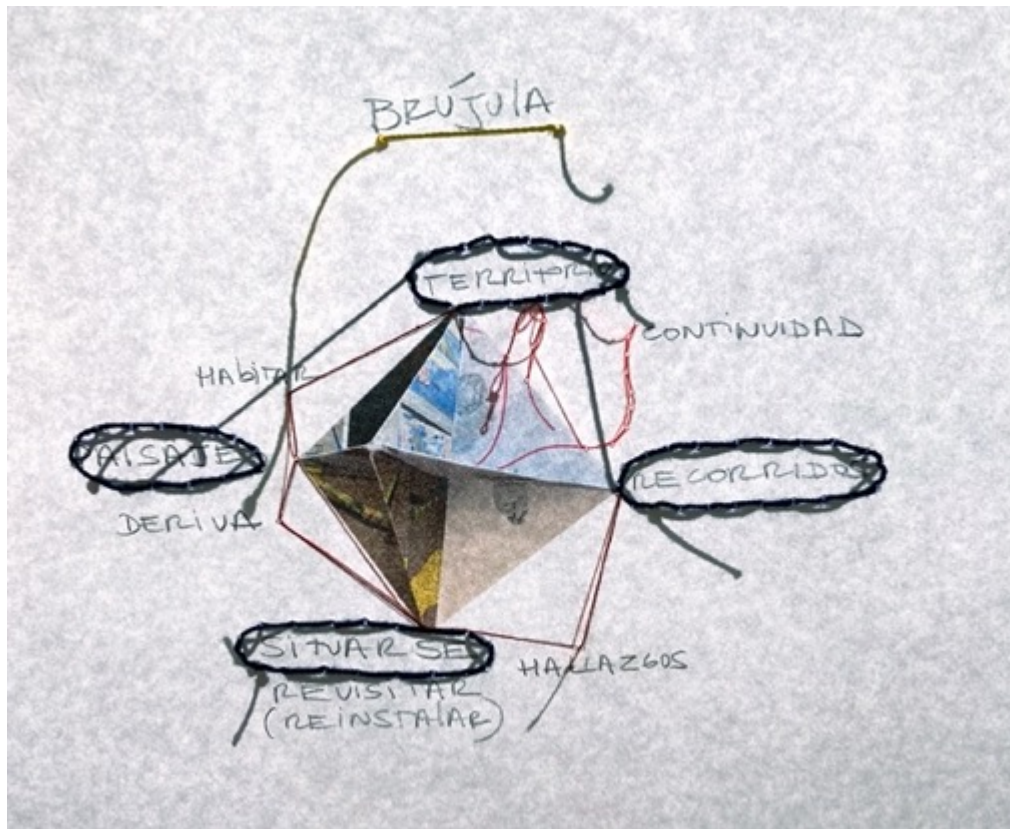 BRÚJULA
TERRITORIO
CONTINUIDAD
HABITAR
PAISAJE
RECORRIDOS
DERIVA
SITUARSE
HALLAZGOS
REVISITAR
(REINSTALAR)